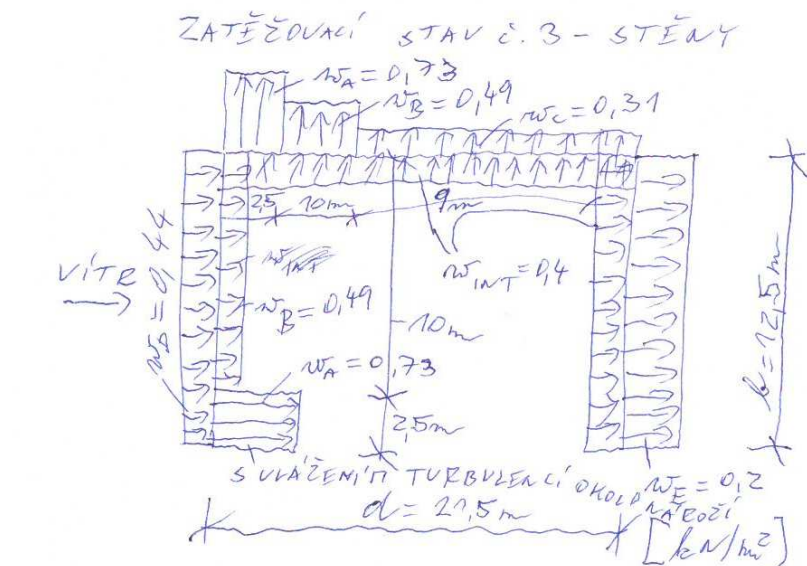 ZATĚŽOVACÍ STAV č. 3 - STĚNY
w_A = 0,73
w_B = 0,49
w_C = 0,31
2,5 10m 9m
VÍTR
w_D = 0,44
w_B = 0,49
w_INT = 0,4
10m
w_A = 0,73
2,5m
b = 12,5m
S UVÁŽENÍM TURBULENCÍ OKOLO NÁROŽÍ
w_E = 0,2
d = 21,5m
[kN/m²]